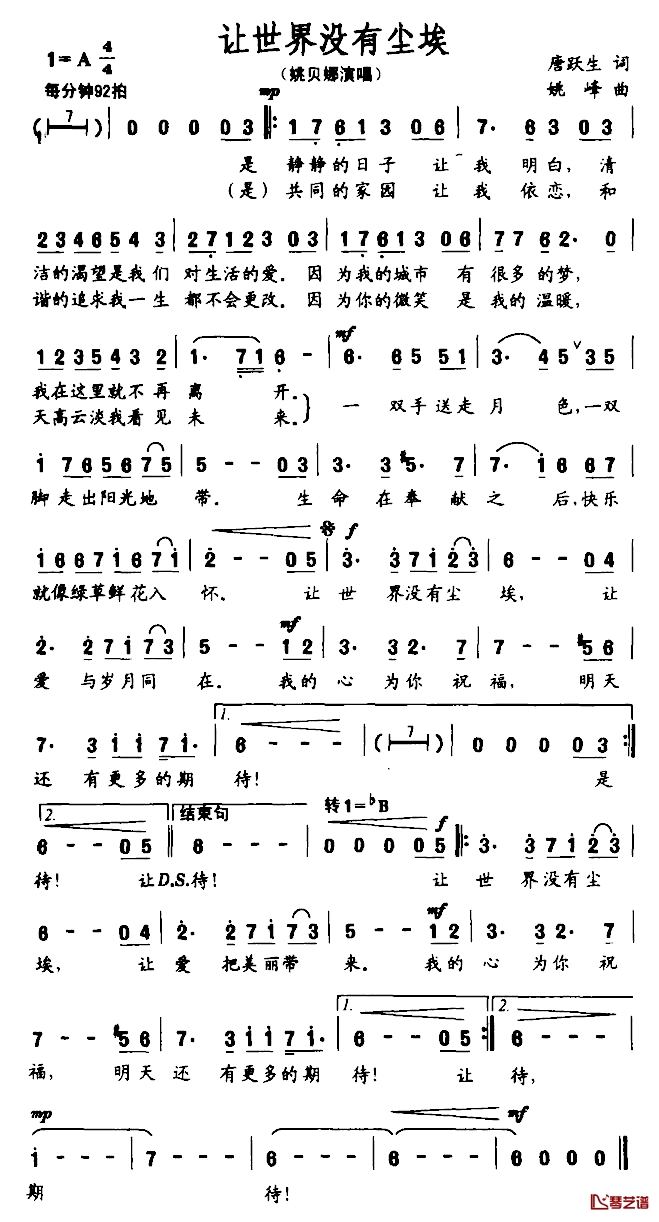 让世界没有尘埃
1=A 4/4
（姚贝娜演唱）
唐跃生 词
每分钟92拍
姚峰 曲
mp
( 7 ) 0 0 0 03 ‖: 1761303 06 | 7· 6303
是 静静的日子 让 我 明白，清
（是）共同的家园 让 我 依恋，和
2346543 | 2712303 03 | 1761303 06 | 77 62· 0
洁的渴望是我们 对生活的爱。因 为我的城市 有 很多的梦，
谐的追求我一生 都不会更改。因 为你的微笑 是 我的温暖，
mf
1235432 | 1· 71 6 - | 6· 65 51 | 3· 45 ∨ 35
我在这里就不再 离 开。
天高云淡我看见 未 来。
一 双手送走月 色，一双
1 76 56 75 | 5 - - 03 | 3· 3 #5· 7 | 7· 1 66 67
脚走出阳光地 带。 生 命 在奉 献之 后，快乐
f
16 67 16 71 | 2 - - 05 | 3· 37 12 3 | 6 - - 04
就像绿草鲜花入 怀。 让 世 界没有尘 埃， 让
mf
2· 27 17 3 | 5 - - 12 | 3· 32· 7 | 7 - - #56
爱 与岁月同 在。 我的 心 为你 祝 福， 明天
1.
7· 31 17 1· | 6 - - - | ( 7 ) | 0 0 0 03 :‖
还 有更多的期 待！ 是
2. 结束句 转1=♭B f
6 - - 05 ‖ 6 - - - | 0 0 0 05 ‖: 3· 37 12 3
待！ 让D.S.待！ 让 世 界没有尘
mf
6 - - 04 | 2· 27 17 3 | 5 - - 12 | 3· 32· 7
埃， 让 爱 把美丽带 来。 我的 心 为你 祝
1. 2.
7 - - #56 | 7· 31 17 1· | 6 - - 05 :‖ 6 - - -
福， 明天 还 有更多的期 待！ 让 待，
mp mf
1 - - - | 7 - - - | 6 - - - | 6 - - - | 6 0 0 0 ‖
期 待！
琴艺谱